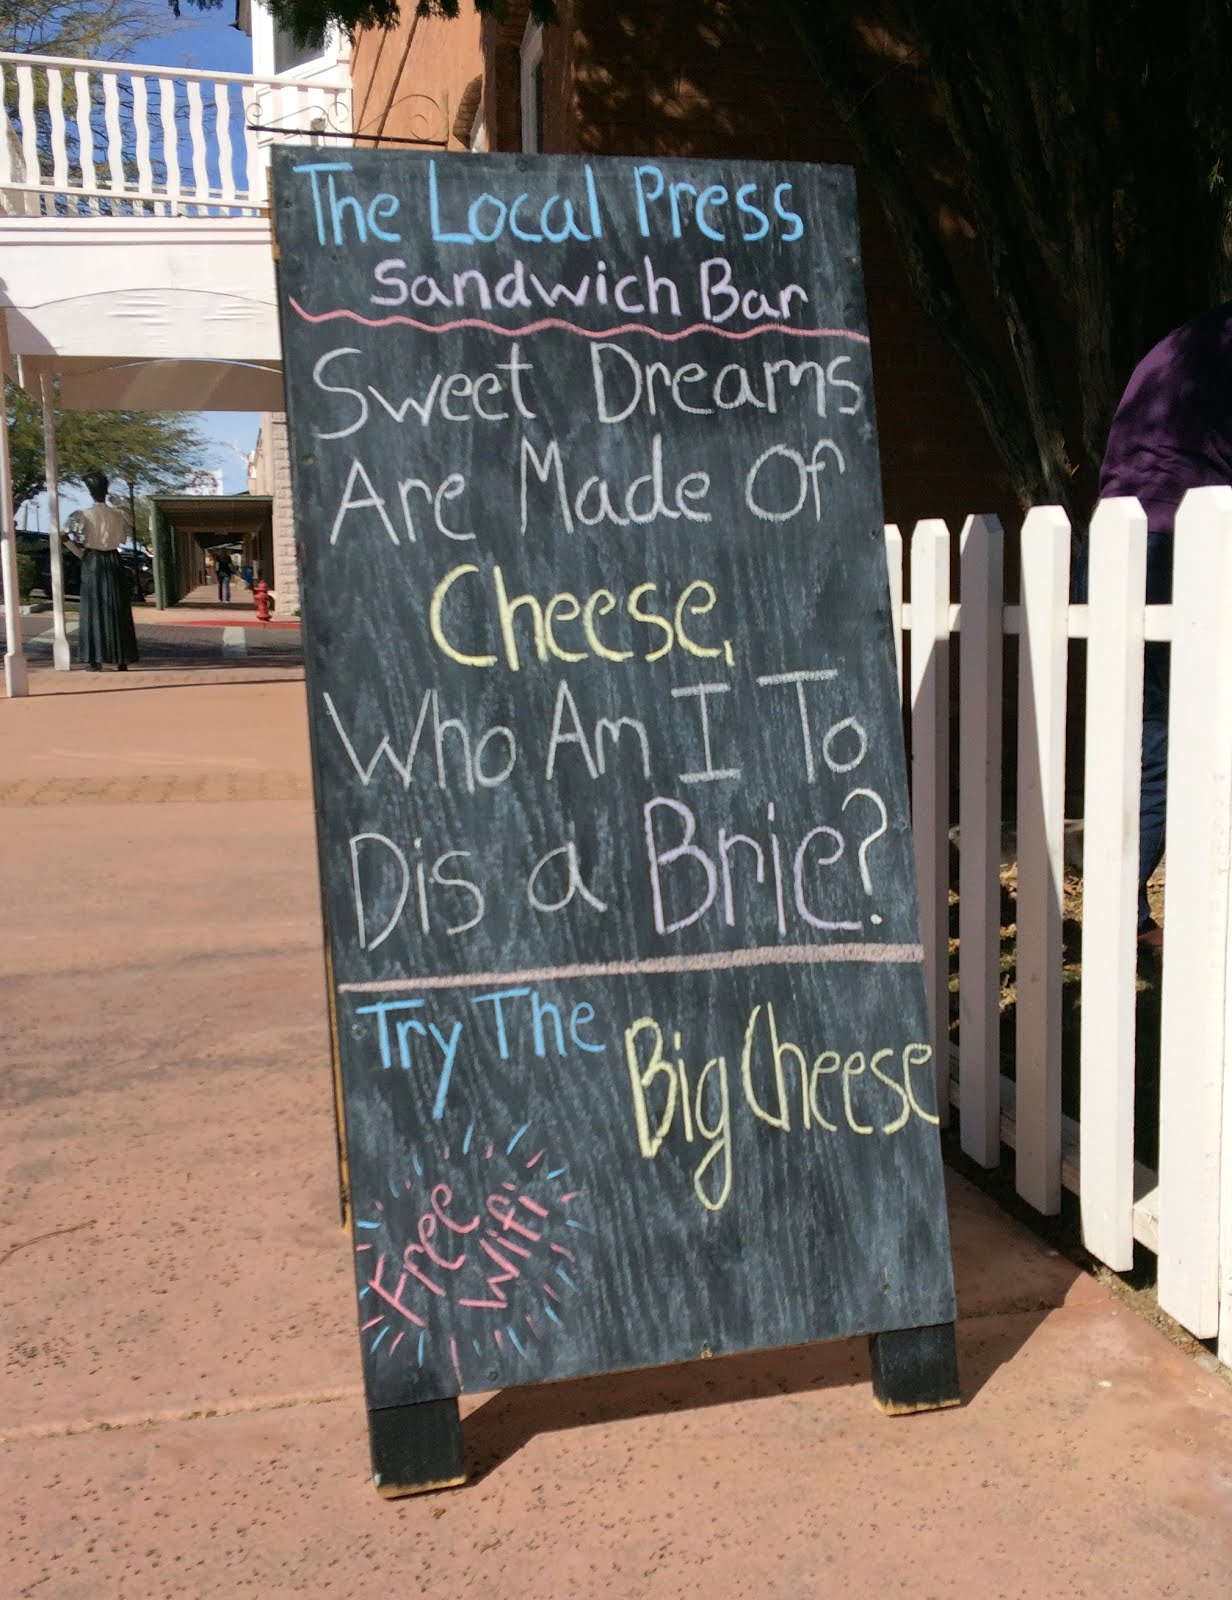 The Local Press
Sandwich Bar
Sweet Dreams
Are Made Of
Cheese,
Who Am I To
Dis a Brie?
Try The Big Cheese
Free
Wifi